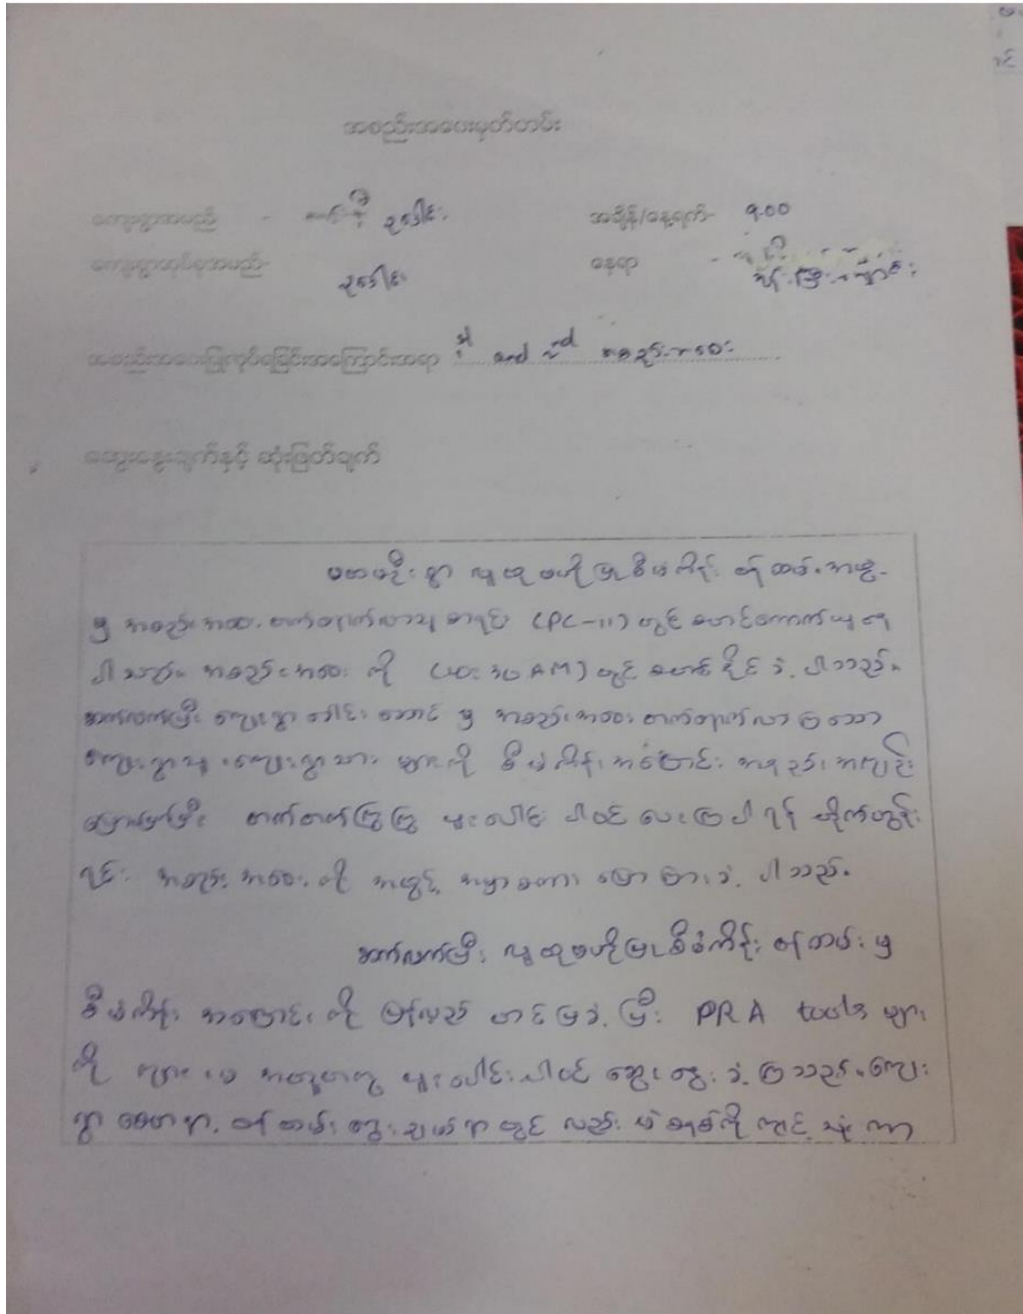 အစည်းအဝေးမှတ်တမ်း
ကျေးရွာအမည် -
အချိန်/နေ့ရက်- 9.00
ကျေးရွာအုပ်စုအမည်-
နေရာ - ဘုန်းကြီးကျောင်း
အစည်းအဝေးပြုလုပ်ခြင်းအကြောင်းအရာ 1st and 2nd အစည်းအဝေး
ဆွေးနွေးချက်နှင့် ဆုံးဖြတ်ချက်
ပထမဦးစွာ လူထုဗဟိုပြုစီမံကိန်း ဝန်ထမ်းအဖွဲ့
မှ အစည်းအဝေး တက်ရောက်လာသူ စာရင်း (PC-11) တွင် ကောက်ယူ
ပါသည်။ အစည်းအဝေး ကို (10:30 AM) တွင် စတင်နိုင်ခဲ့ပါသည်။
ဆက်လက်ပြီး ကျေးရွာ မှ အစည်းအဝေး တက်ရောက်လာကြသော
ကျေးရွာသူ ကျေးရွာသား များကို စီမံကိန်းအကြောင်း အကျဉ်း
ပြောပြပြီး တက်တက်ကြွကြွ ပူးပေါင်း ပါဝင် ပေးကြပါရန် တိုက်တွန်း
ရင်း အစည်းအဝေးကို အဖွင့် အမှာစကား ပြောကြားခဲ့ပါသည်။
ဆက်လက်ပြီး လူထုဗဟိုပြုစီမံကိန်း ဝန်ထမ်း မှ
စီမံကိန်း အကြောင်းကို ပြန်လည် တင်ပြခဲ့ပြီး PRA tools များ
ကို အတူတကွ ပူးပေါင်းပါဝင် ဆွေးနွေးခဲ့ကြသည်။ ကျေး
ရွာ စေတနာ့ဝန်ထမ်း ရွေးချယ်ရာတွင် လည်း မဲစနစ်ကို ကျင့်သုံးကာ